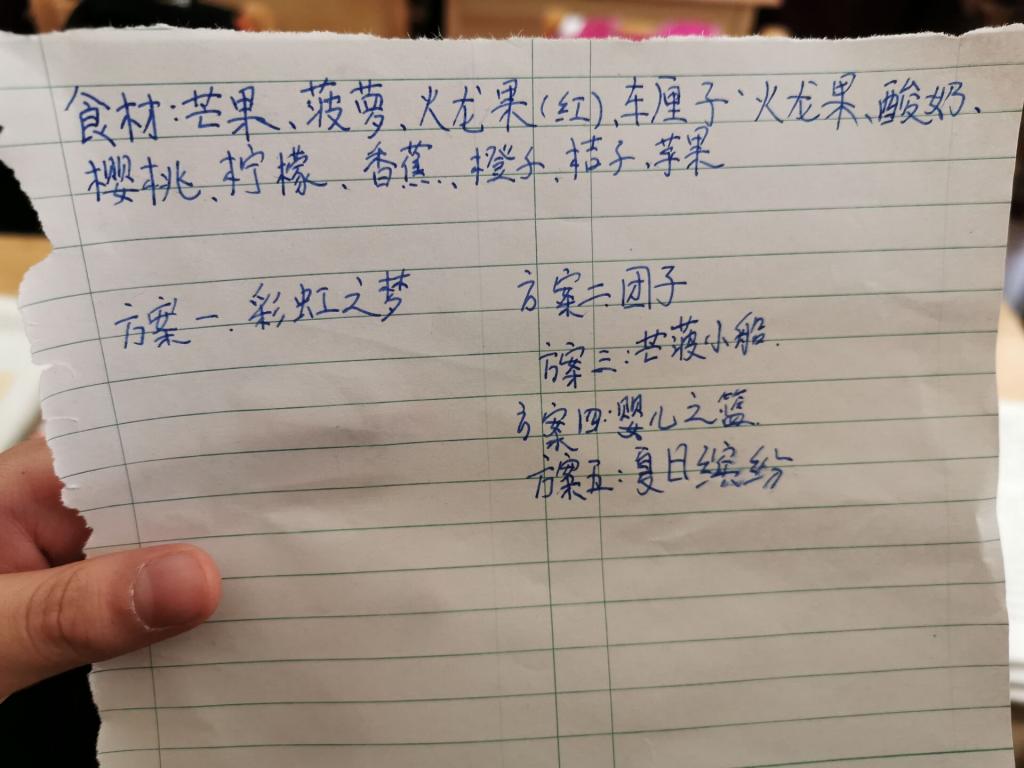 食材:芒果、菠萝、火龙果(红)、车厘子、火龙果、酸奶、
樱桃、柠檬、香蕉、橙子、桔子、苹果
方案一.彩虹之梦
方案二:团子
方案三:芒菠小船.
方案四:婴儿之篮.
方案五:夏日缤纷